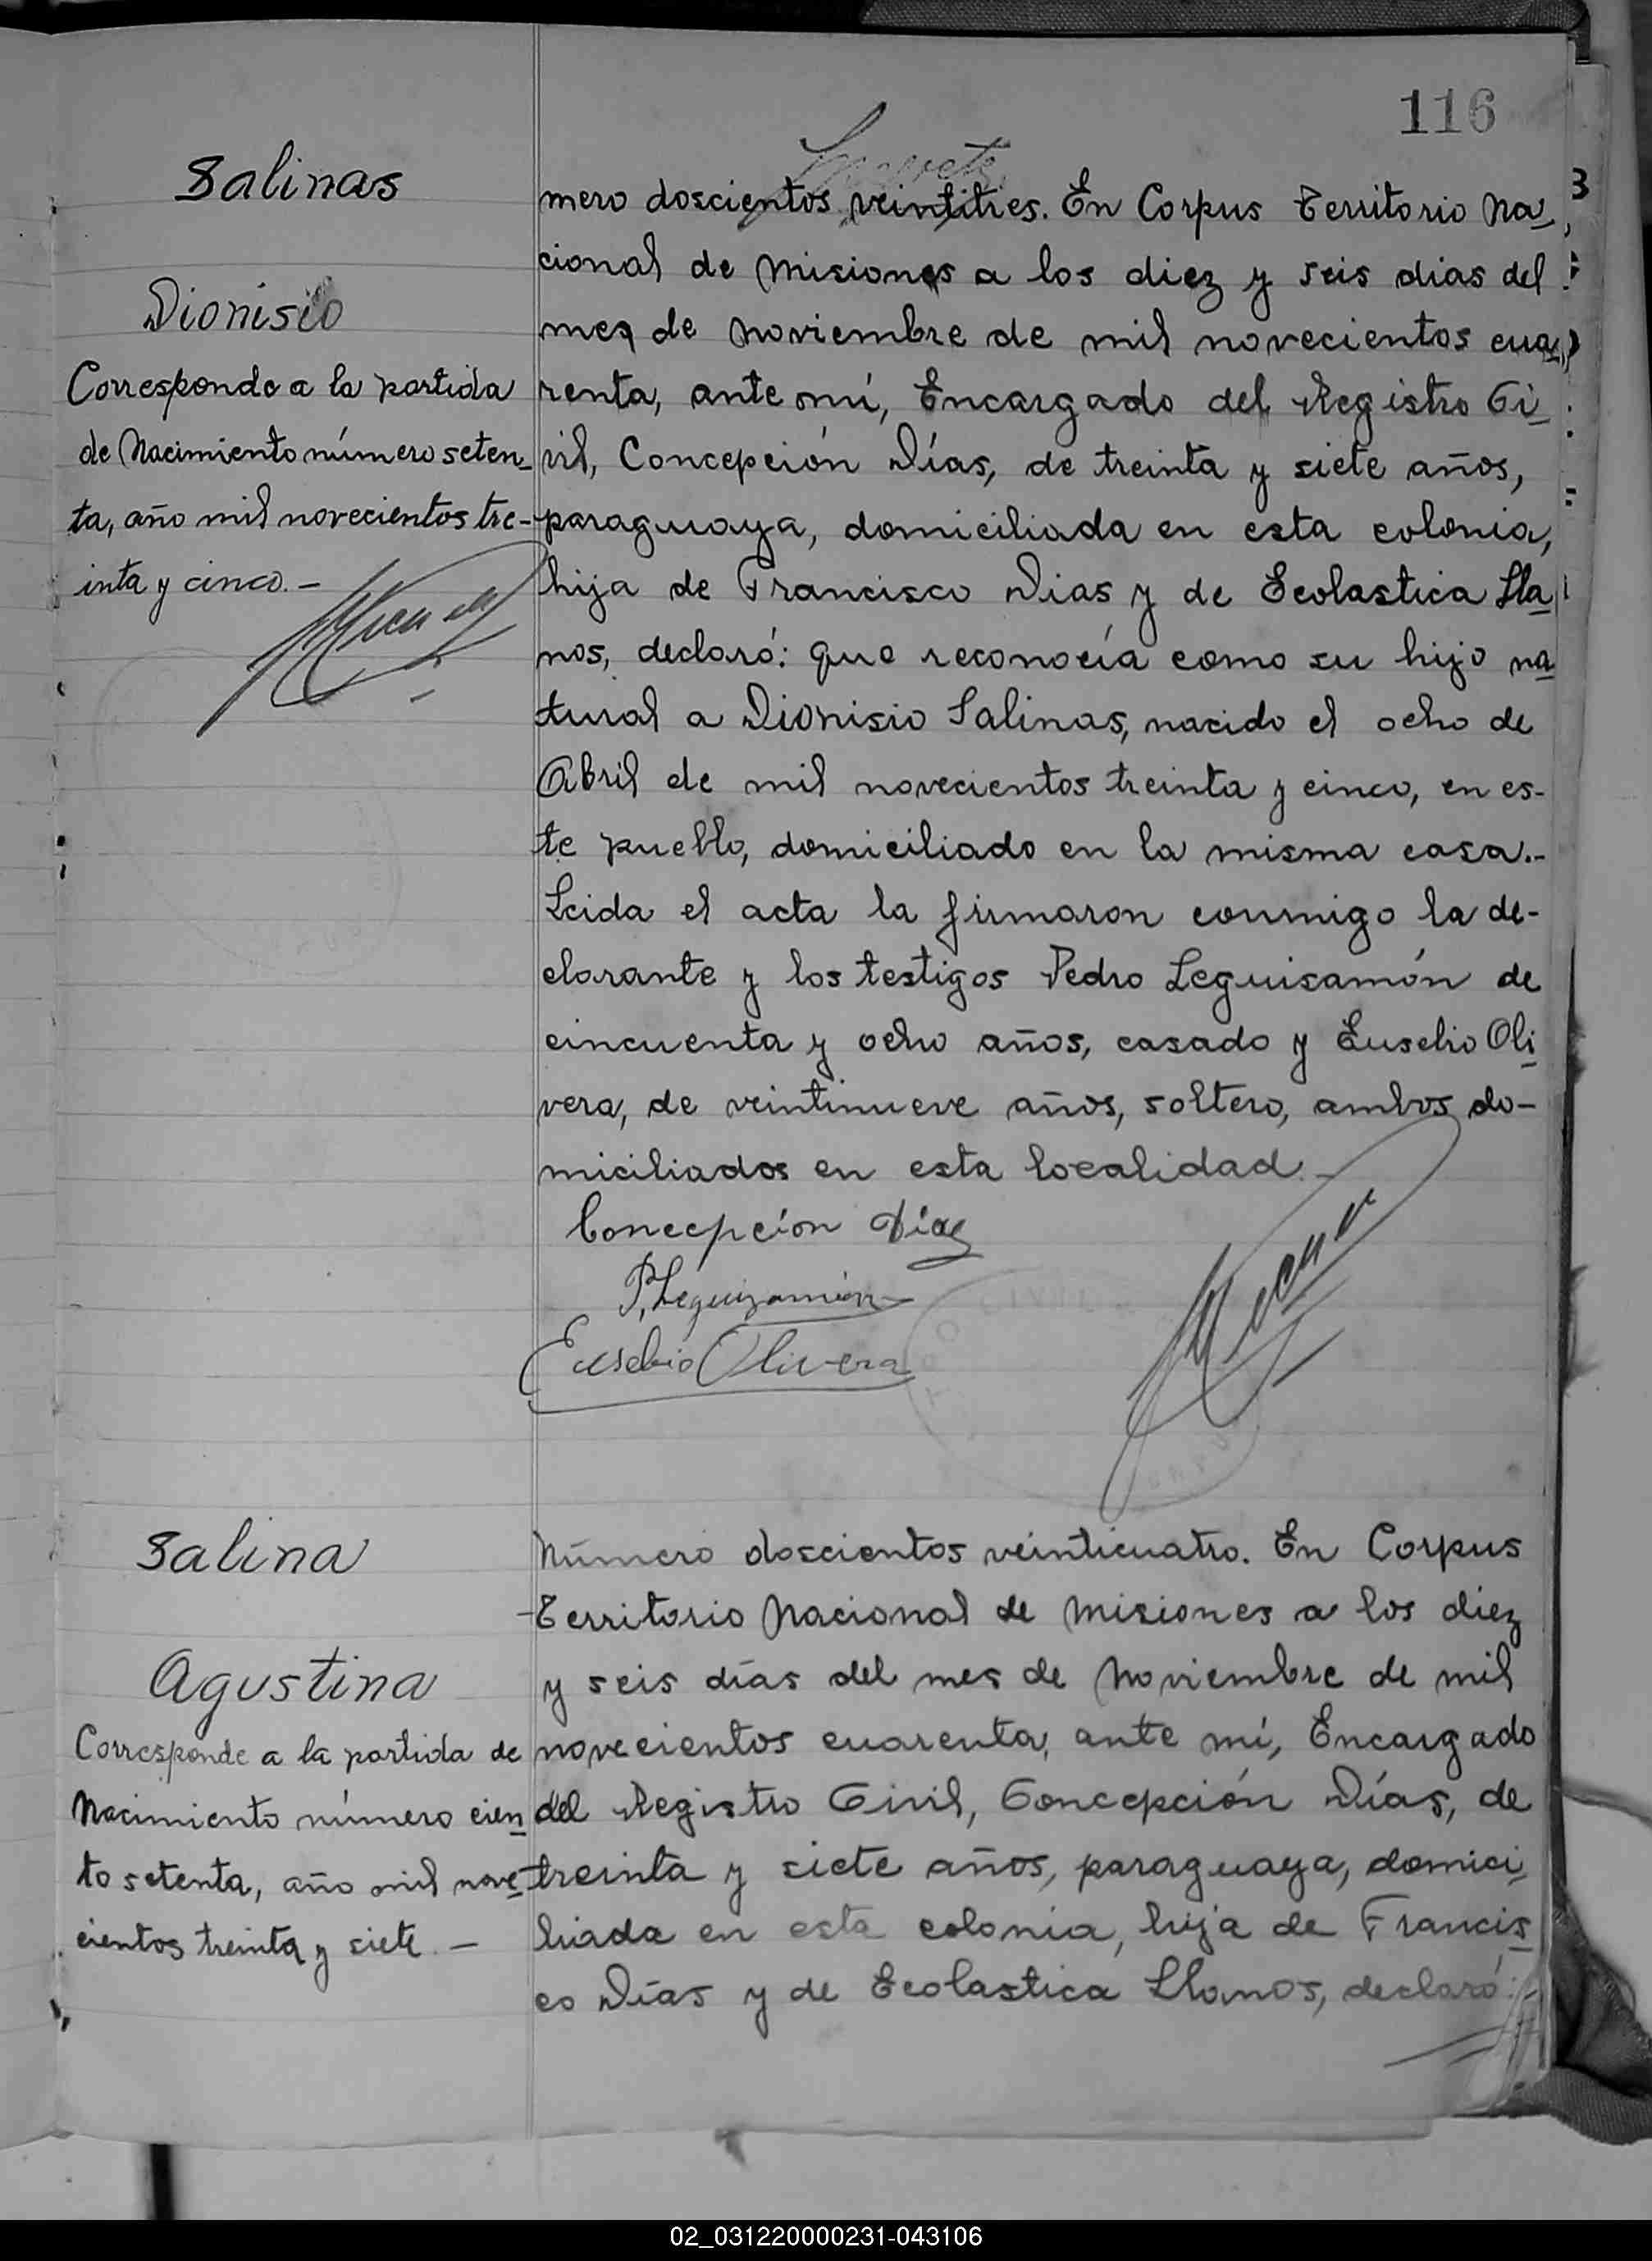 116
Salinas
Dionisio
Corresponde a la partida
de Nacimiento número seten-
ta, año mil novecientos tre-
inta y cinco.-
mero doscientos veintitres. En Corpus Territorio Na
cional de Misiones a los diez y seis dias del
mes de Noviembre de mil novecientos cua
renta, ante mí, Encargado del Registro Ci
vil, Concepción Días, de treinta y siete años,
paraguaya, domiciliada en esta colonia,
hija de Francisco Dias y de Ecolastica Lla
nos, declaró: que reconocía como su hijo na
tural a Dionisio Salinas, nacido el ocho de
Abril de mil novecientos treinta y cinco, en es-
te pueblo, domiciliado en la misma casa.-
Leida el acta la firmaron conmigo la de-
clarante y los testigos Pedro Leguisamón de
cincuenta y ocho años, casado y Eusebio Oli
vera, de veintinueve años, soltero, ambos do-
miciliados en esta localidad.-
Concepción Díaz
P. Leguizamón
Eusebio Olivera
Salina
Agustina
Corresponde a la partida de
Nacimiento número cien
to setenta, año mil nove
cientos treinta y siete.-
Número doscientos veinticuatro. En Corpus
Territorio Nacional de Misiones a los diez
y seis días del mes de Noviembre de mil
novecientos cuarenta, ante mí, Encargado
del Registro Civil, Concepción Días, de
treinta y siete años, paraguaya, domici
liada en esta colonia, hija de Francis
co Días y de Ecolastica Llanos, declaró:
02_031220000231-043106